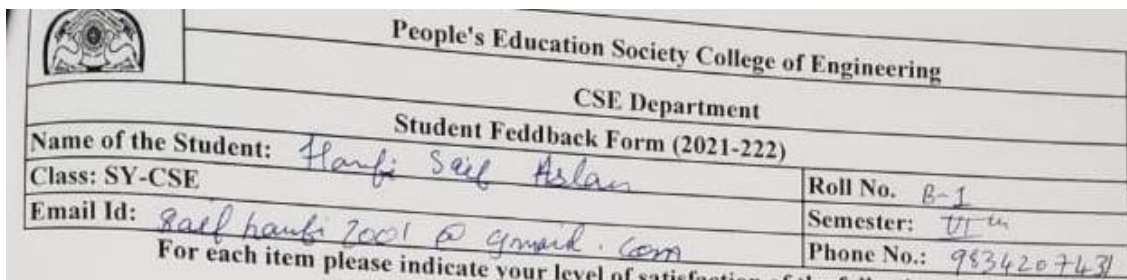 People's Education Society College of Engineering
CSE Department
Student Feddback Form (2021-222)
Name of the Student: Hanfi Saif Aslam
Class: SY-CSE
Roll No. B-1
Email Id: saifhanfi2001@gmail.com
Semester: VIth
Phone No.: 9834207431
For each item please indicate your level of satisfaction of the